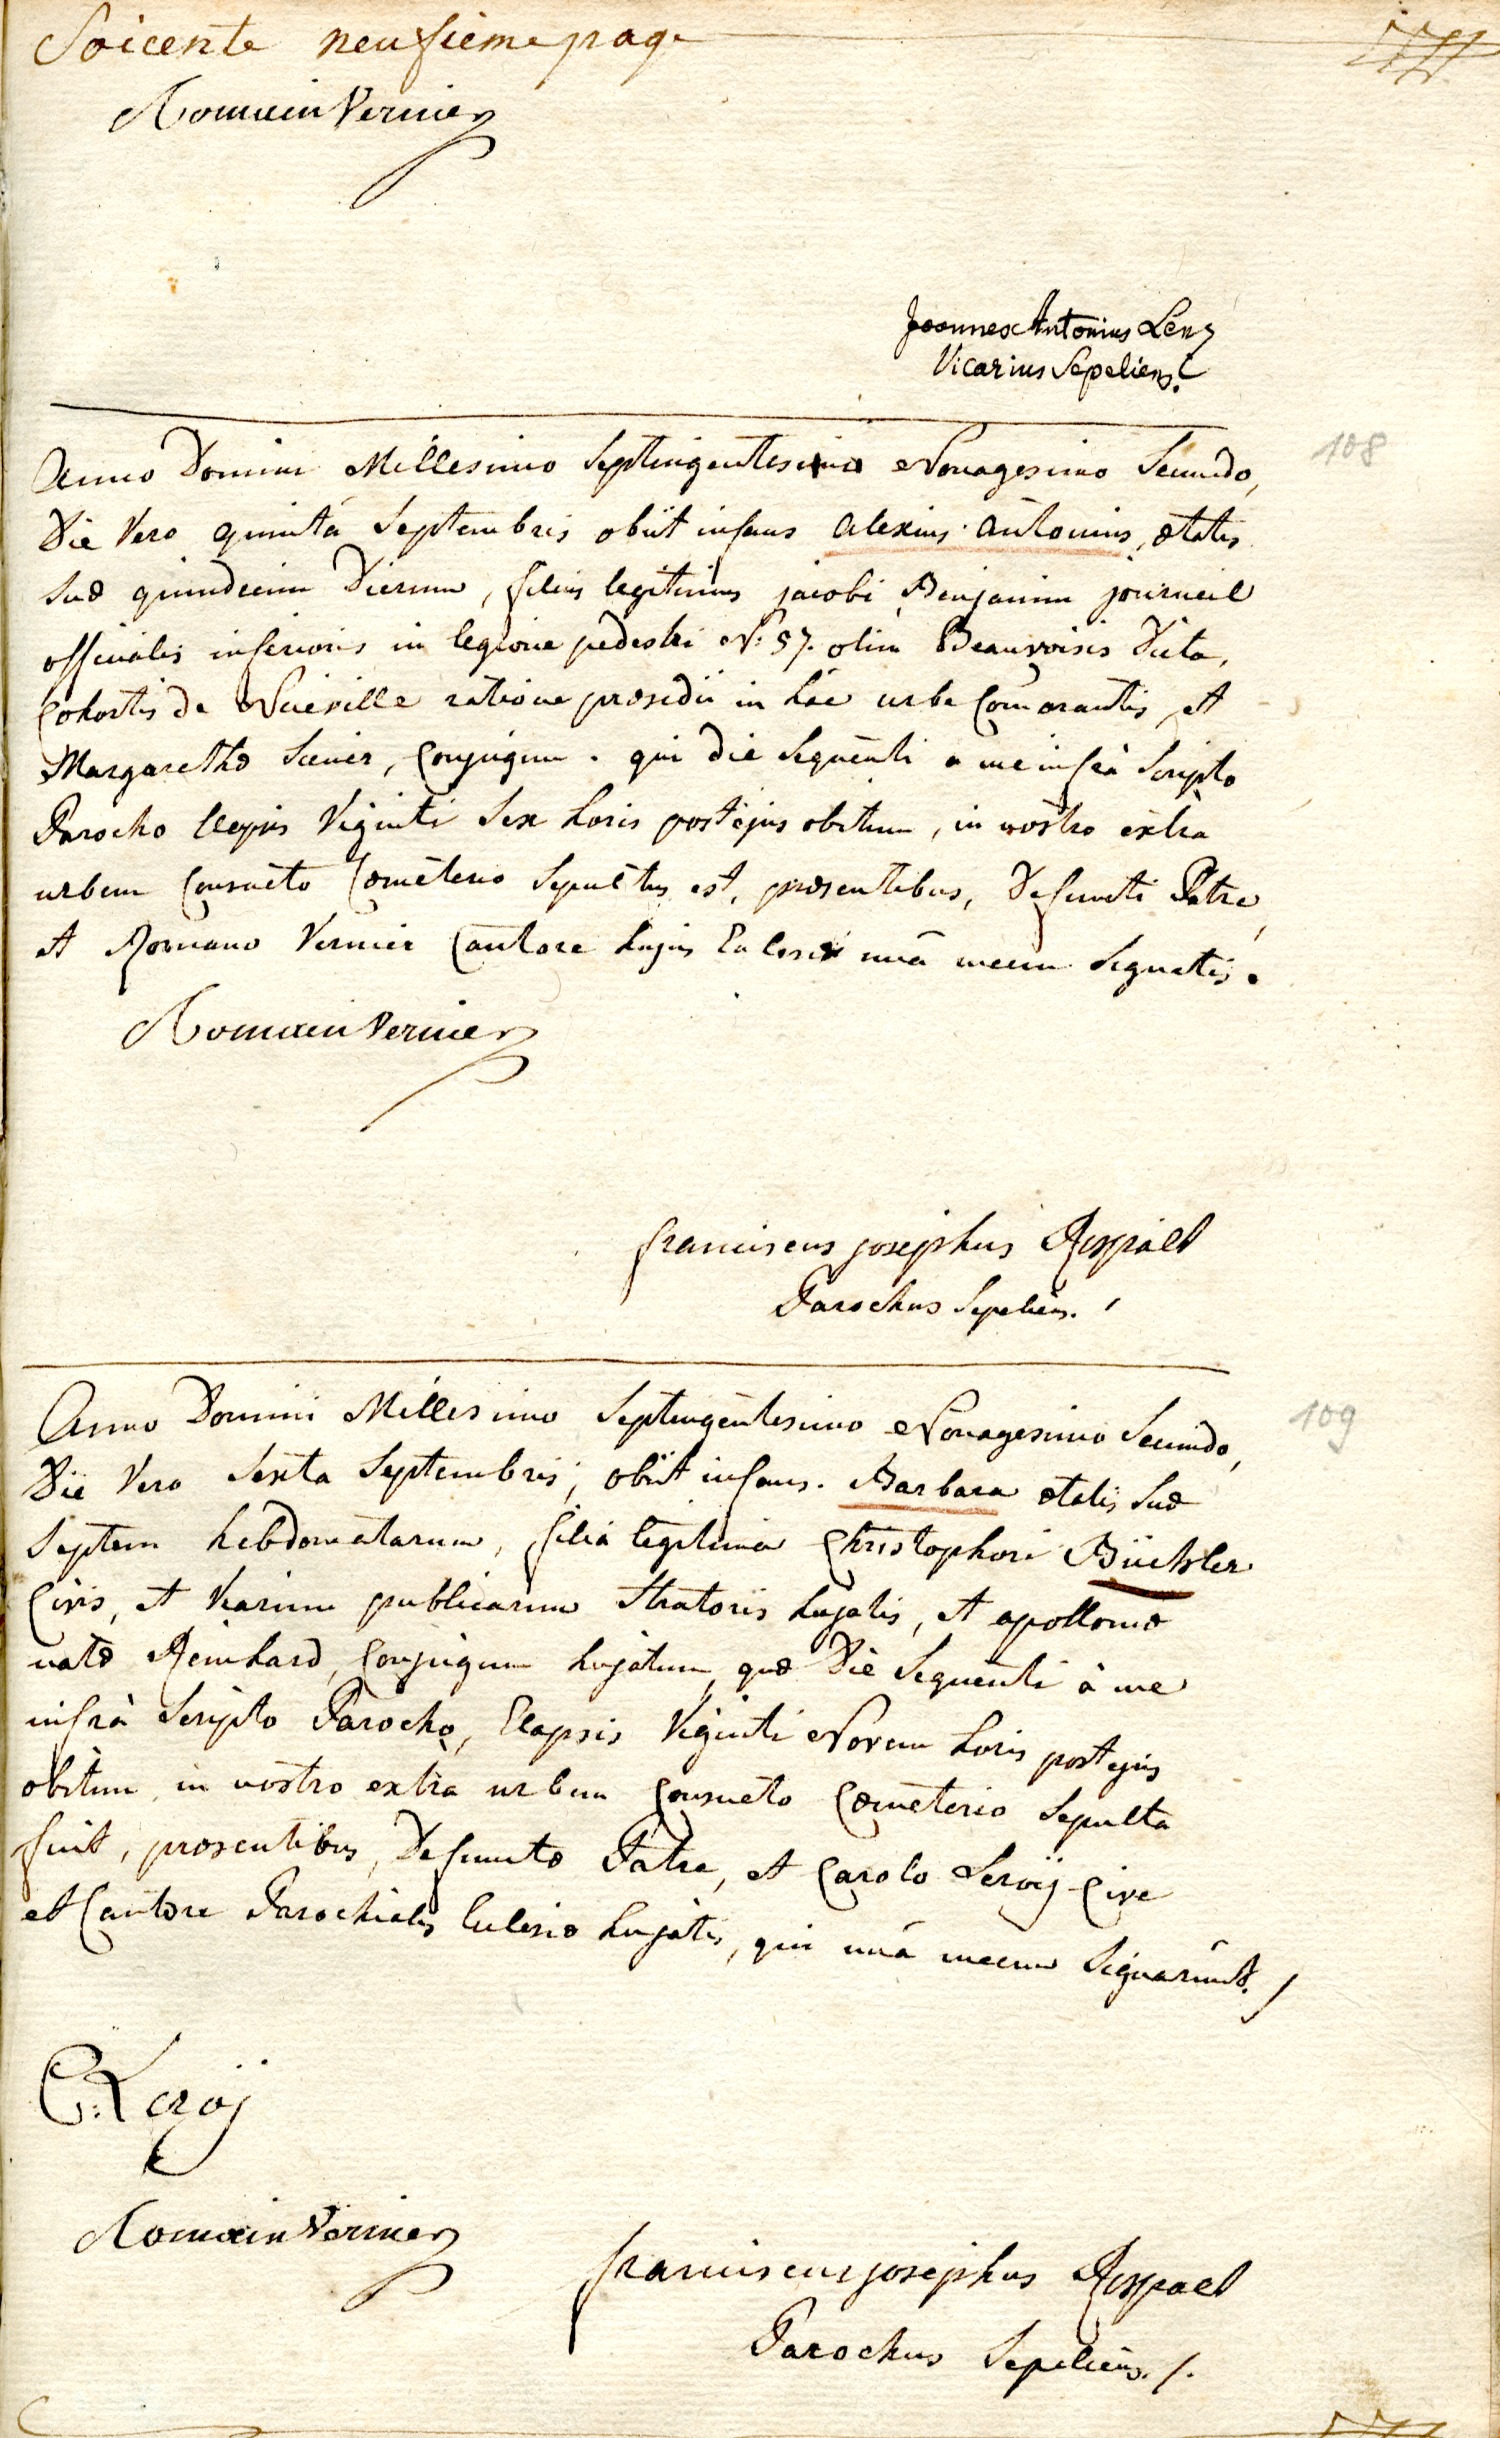 Soicente neufieme page
Romain Vernier
Joannes Antonius Lenz
Vicarius Sepeliens.
108
Anno Domini Millesimo Septingentesimo Nonagesimo Secundo,
Die Vero quintâ Septembris obiit infans Alexius Antonius, ætatis
suæ quindecim Dierum, filius legitimus jacobi Benjamin
officialis inferioris in legione pedestri N: 57. olim Beauvoisis Dicta,
Cohortis de ratione præsidii in hâc urbe Comorantis, et
Margarethæ Conjugum. qui die Sequenti a me infrà Scripto
Parocho Elapsis Viginti Sex horis post ejus obitum, in nostro extrà
urbem Consueto Cœmeterio Sepultus est, præsentibus, Defuncti Patre,
et Romano Vernier Cantore hujus Eclesiæ unâ mecum Signatis.
Romain Vernier
franciscus josephus
Parochus Sepeliens. /
109
Anno Domini Millesimo Septingentesimo Nonagesimo Secundo,
Die Vero Sexta Septembris, obiit infans. Barbara ætatis Suæ
Septem hebdomatarum, filia legitima Christophori Büchsler
Civis, et Viarum publicarum Stratoris hujatis, et apolloniæ
natæ Reinhard, Conjugum hujatum, quæ Die Sequenti à me
infrà Scripto Parocho, Elapsis Viginti Novem horis post ejus
obitum, in nostro extrà urbem Consueto Cœmeterio Sepulta
fuit, præsentibus, Defunctæ Patre, et Carolo Leroij Cive
et Cantore Parochialis Eclesiæ hujatis, qui unâ mecum Signarunt. /
C: Leroij
Romain Vernier
franciscus josephus
Parochus Sepeliens. /.